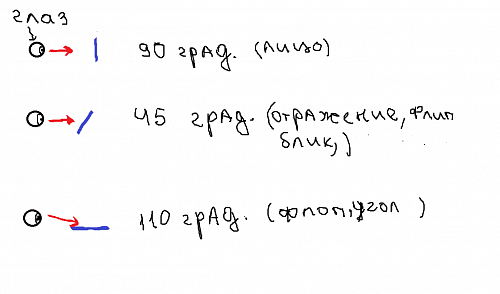 глаз
90 град. (лицо)
45 град. (отражение, флип
блик,)
110 град. (флоп, угол )